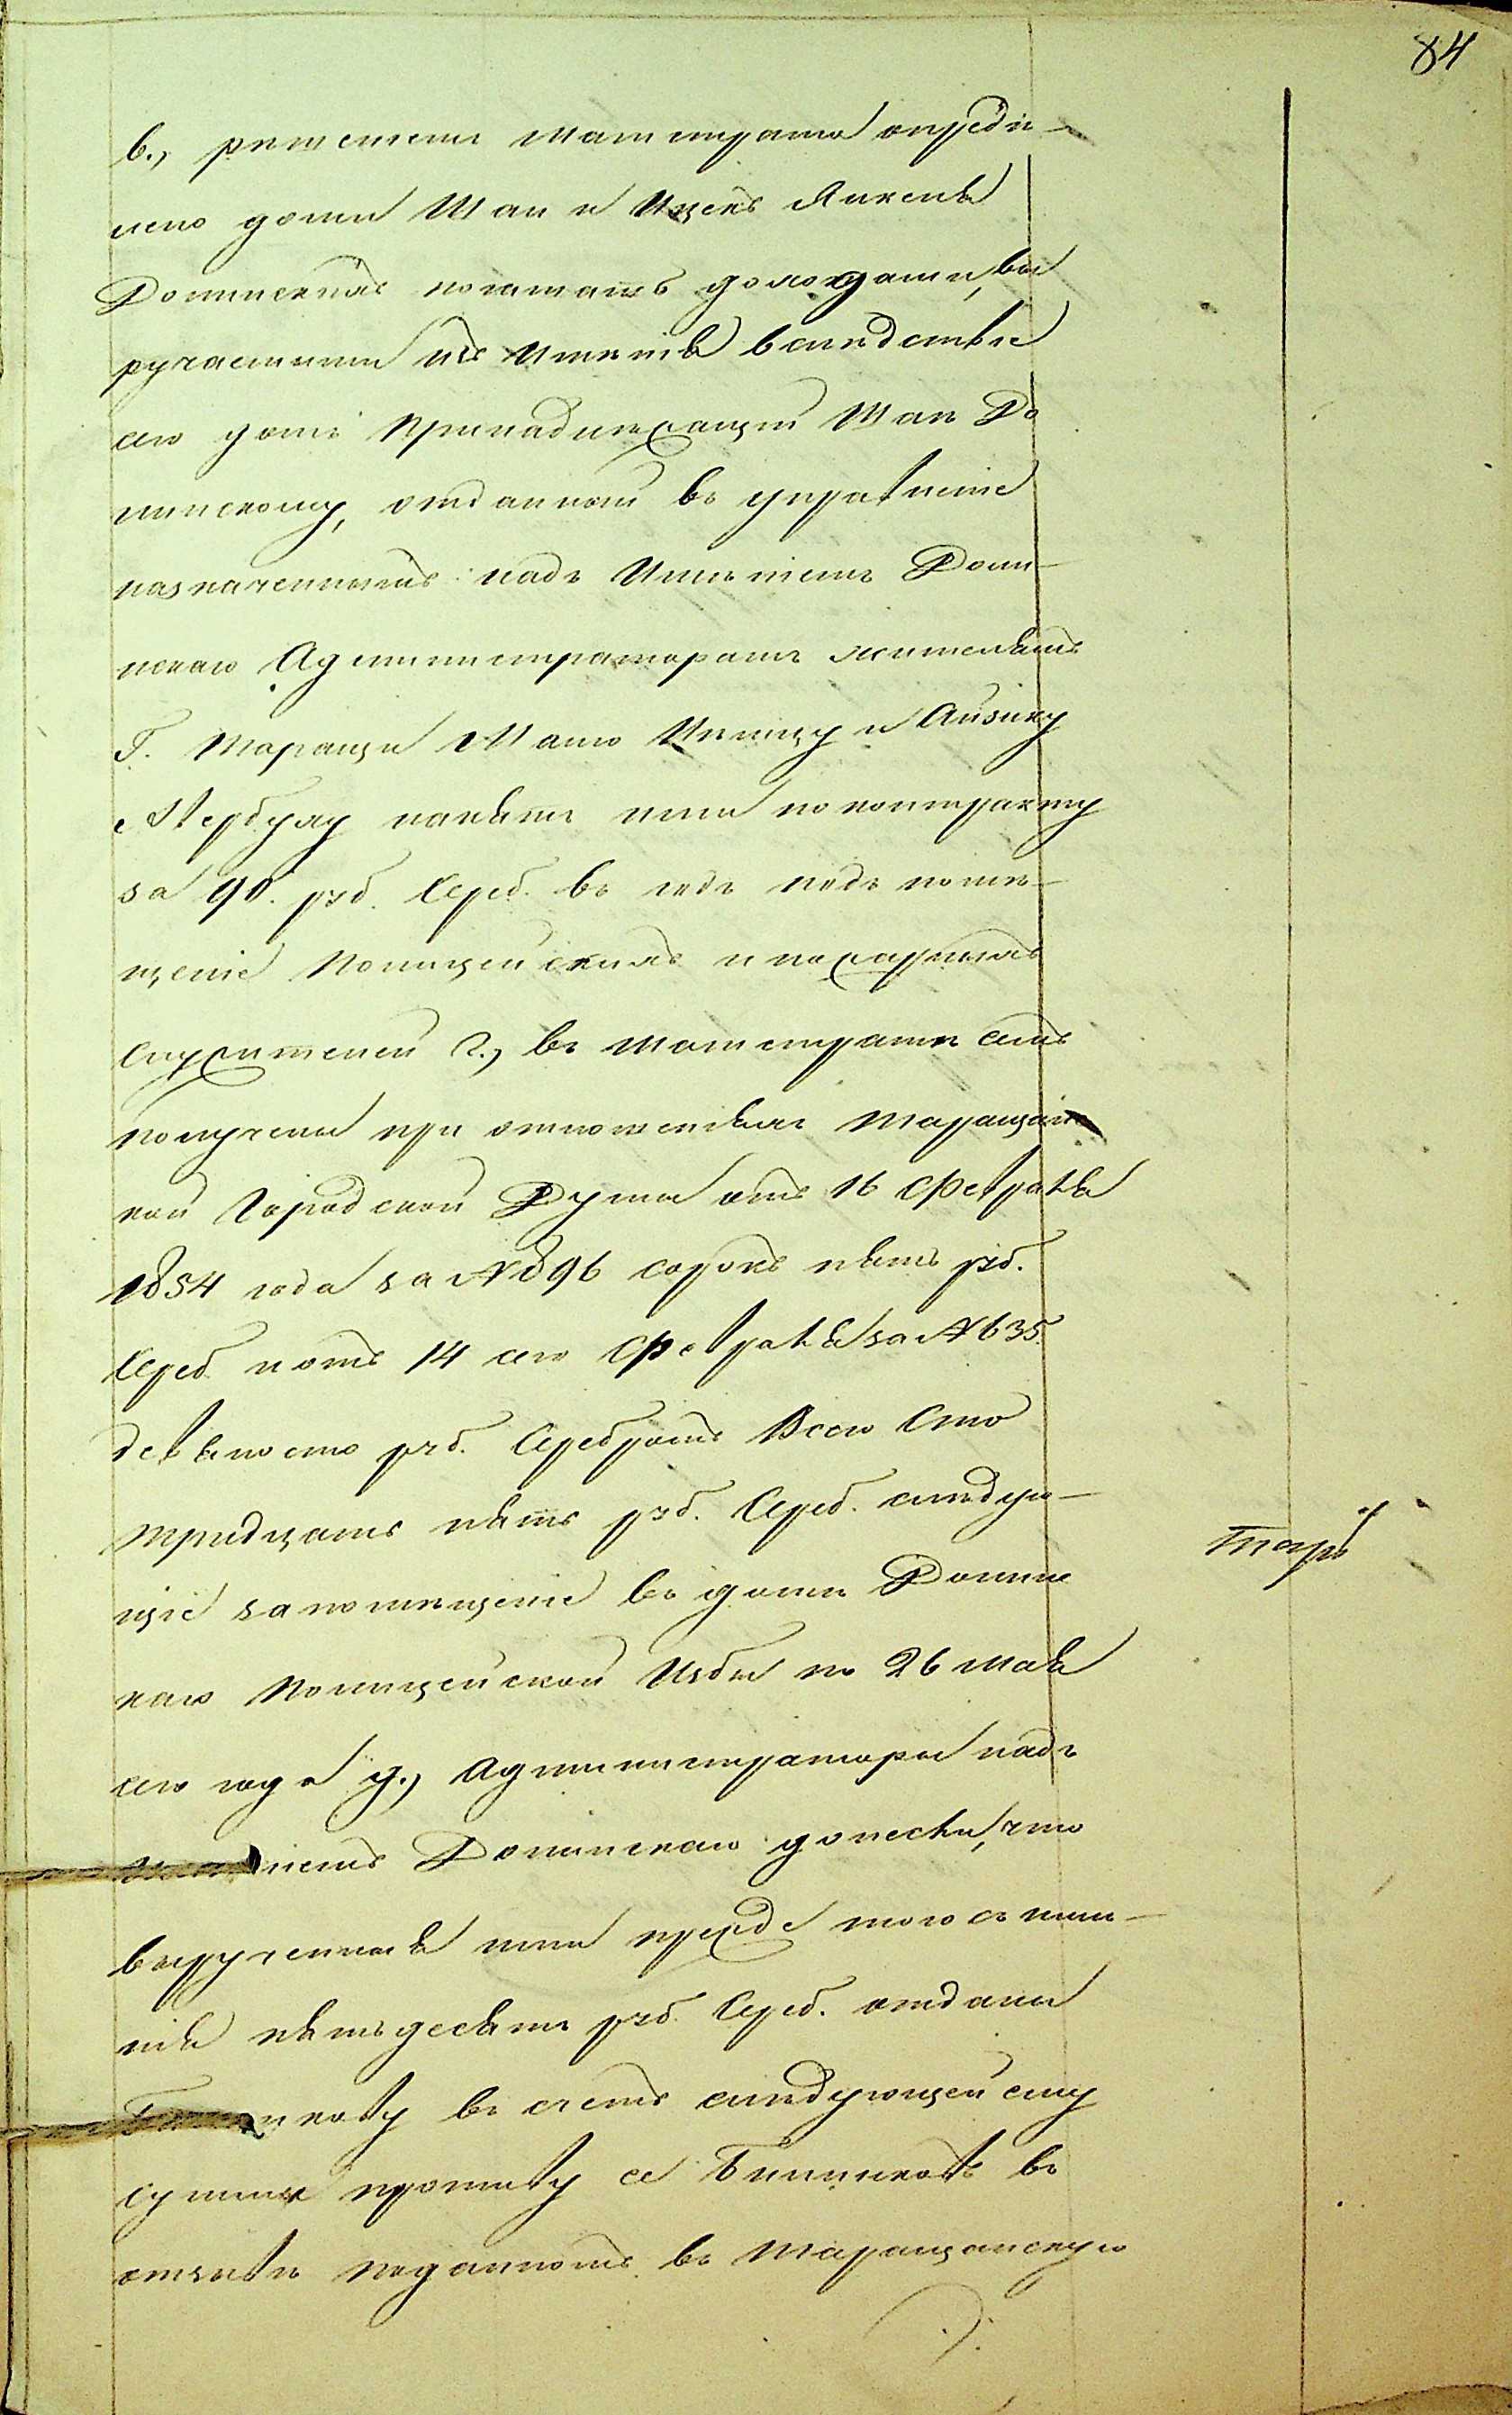 84
в., решеніемъ Магистрата опредѣ-
лено домы Шаи и Ицекъ Янкеля
Долинскихъ почитать должниками, вы
ручаемыми изъ имѣнія вслѣдствіе
сего домъ принадлежащій Шаѣ До
линскому, отданной въ управленіе
назначеннымъ надъ имѣніемъ Долин-
скаго Администраторамъ жителямъ
Г. Таращи Мошю и Айзику
нанятъ ими по контракту
за 90. руб. Сереб. въ годъ подъ помѣ-
щеніе Полицейскихъ и пожарныхъ
служителей г., въ Магистратѣ семъ
получены при отношеніяхъ Таращанс
кой Городской Думы отъ 16 Февраля
1854 года за № 896 сорокъ пять руб.
Сереб. и отъ 14 сего Февраля за № 635.
девяносто руб. Серебромъ Всего Сто
тридцать пять руб. Сереб. слѣдую-
щіе за помѣщеніе въ домѣ Долинс
каго Полицейской Избы по 26 мая
сего года д., Администраторы надъ
имѣніемъ Долинскаго донесли, что
вырученныя ими прежде того съ имѣ-
нія пятьдесятъ руб. Сереб. отданы
въ счетъ слѣдующей ему
суммы противу се Билинковъ въ
отзывѣ поданномъ въ Таращанскую